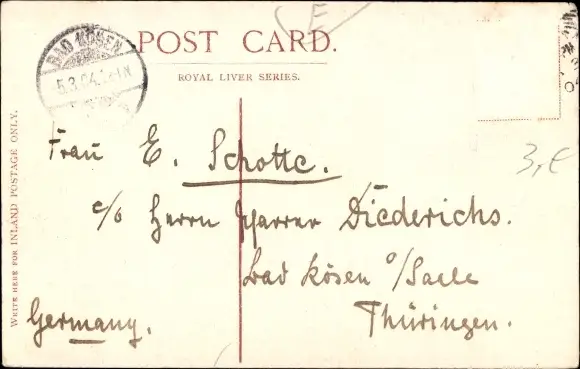 E
POST CARD.
ROYAL LIVER SERIES.
BAD KÖSEN
5.3.04. 
WRITE HERE FOR INLAND POSTAGE ONLY.
Frau E. Schotte.
c/o Herrn Pfarrer Diederichs.
Bad Kösen o/Saale
Thüringen.
Germany.
3,€
04